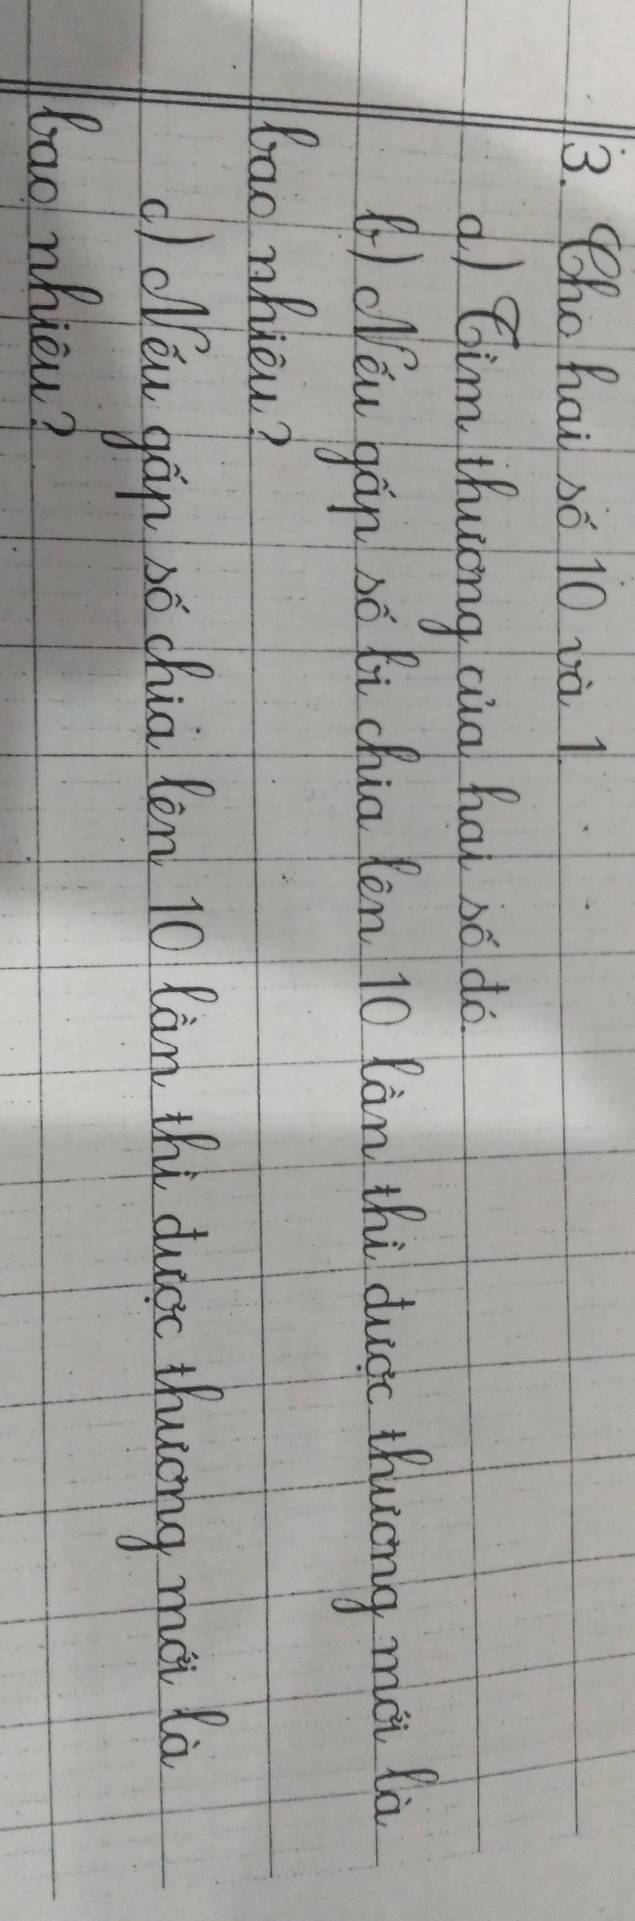 3. Cho hai số 10 và 1.
a) Tìm thương của hai số đó.
b) Nếu gấp số bị chia lên 10 lần thì được thương mới là
bao nhiêu?
c) Nếu gấp số chia lên 10 lần thì được thương mới là
bao nhiêu?